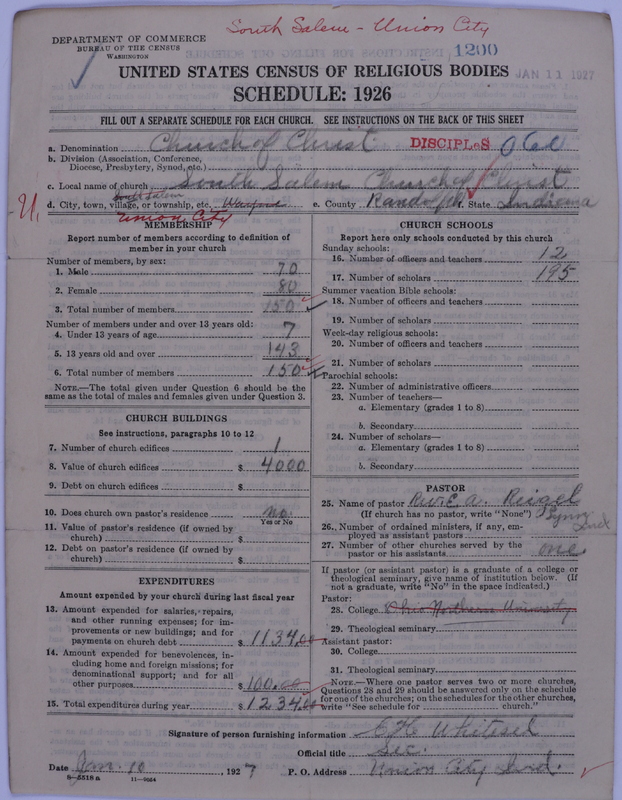 South Salem - Union City
DEPARTMENT OF COMMERCE
BUREAU OF THE CENSUS
WASHINGTON
1200
JAN 11 1927
UNITED STATES CENSUS OF RELIGIOUS BODIES
SCHEDULE: 1926
FILL OUT A SEPARATE SCHEDULE FOR EACH CHURCH. SEE INSTRUCTIONS ON THE BACK OF THIS SHEET
a. Denomination Church of Christ DISCIPLES
b. Division (Association, Conference, Diocese, Presbytery, Synod, etc.)
c. Local name of church South Salem Church of Christ
South Salem
d. City, town, village, or township, etc. e. County Randolph f. State Indiana
Union City
MEMBERSHIP
Report number of members according to definition of member in your church
Number of members, by sex:
1. Male 70
2. Female 80
3. Total number of members 150
Number of members under and over 13 years old:
4. Under 13 years of age 7
5. 13 years old and over 143
6. Total number of members 150
NOTE.—The total given under Question 6 should be the same as the total of males and females given under Question 3.
CHURCH BUILDINGS
See instructions, paragraphs 10 to 12
7. Number of church edifices 1
8. Value of church edifices $ 4000
9. Debt on church edifices $
10. Does church own pastor's residence no
Yes or No
11. Value of pastor's residence (if owned by church) $
12. Debt on pastor's residence (if owned by church) $
EXPENDITURES
Amount expended by your church during last fiscal year
13. Amount expended for salaries, repairs, and other running expenses; for improvements or new buildings; and for payments on church debt $ 1134.00
14. Amount expended for benevolences, including home and foreign missions; for denominational support; and for all other purposes $ 100.00
15. Total expenditures during year $ 1234.00
CHURCH SCHOOLS
Report here only schools conducted by this church
Sunday schools:
16. Number of officers and teachers 12
17. Number of scholars 195
Summer vacation Bible schools:
18. Number of officers and teachers
19. Number of scholars
Week-day religious schools:
20. Number of officers and teachers
21. Number of scholars
Parochial schools:
22. Number of administrative officers
23. Number of teachers—
a. Elementary (grades 1 to 8)
b. Secondary
24. Number of scholars—
a. Elementary (grades 1 to 8)
b. Secondary
PASTOR
25. Name of pastor Rev. E. A. Reigel
(If church has no pastor, write "None")
26. Number of ordained ministers, if any, employed as assistant pastors
27. Number of other churches served by the pastor or his assistants one
If pastor (or assistant pastor) is a graduate of a college or theological seminary, give name of institution below. (If not a graduate, write "No" in the space indicated.)
Pastor:
28. College Ohio Northern University
29. Theological seminary
Assistant pastor:
30. College
31. Theological seminary
NOTE.—Where one pastor serves two or more churches, Questions 28 and 29 should be answered only on the schedule for one of the churches; on the schedules for the other churches, write "See schedule for church."
Signature of person furnishing information C H Whitesel
Official title Sec.
Date Jan. 10, 1927 P. O. Address Union City Ind.
8—5518a 11—9664